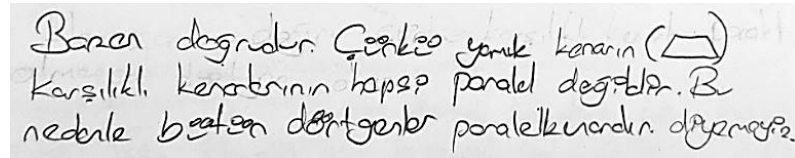 Bazen doğrudur. Çünkü yamuk kenarın ( )
karşılıklı kenarlarının hepsi paralel değildir. Bu
nedenle bütün dörtgenler paralelkenardır diyemeyiz.